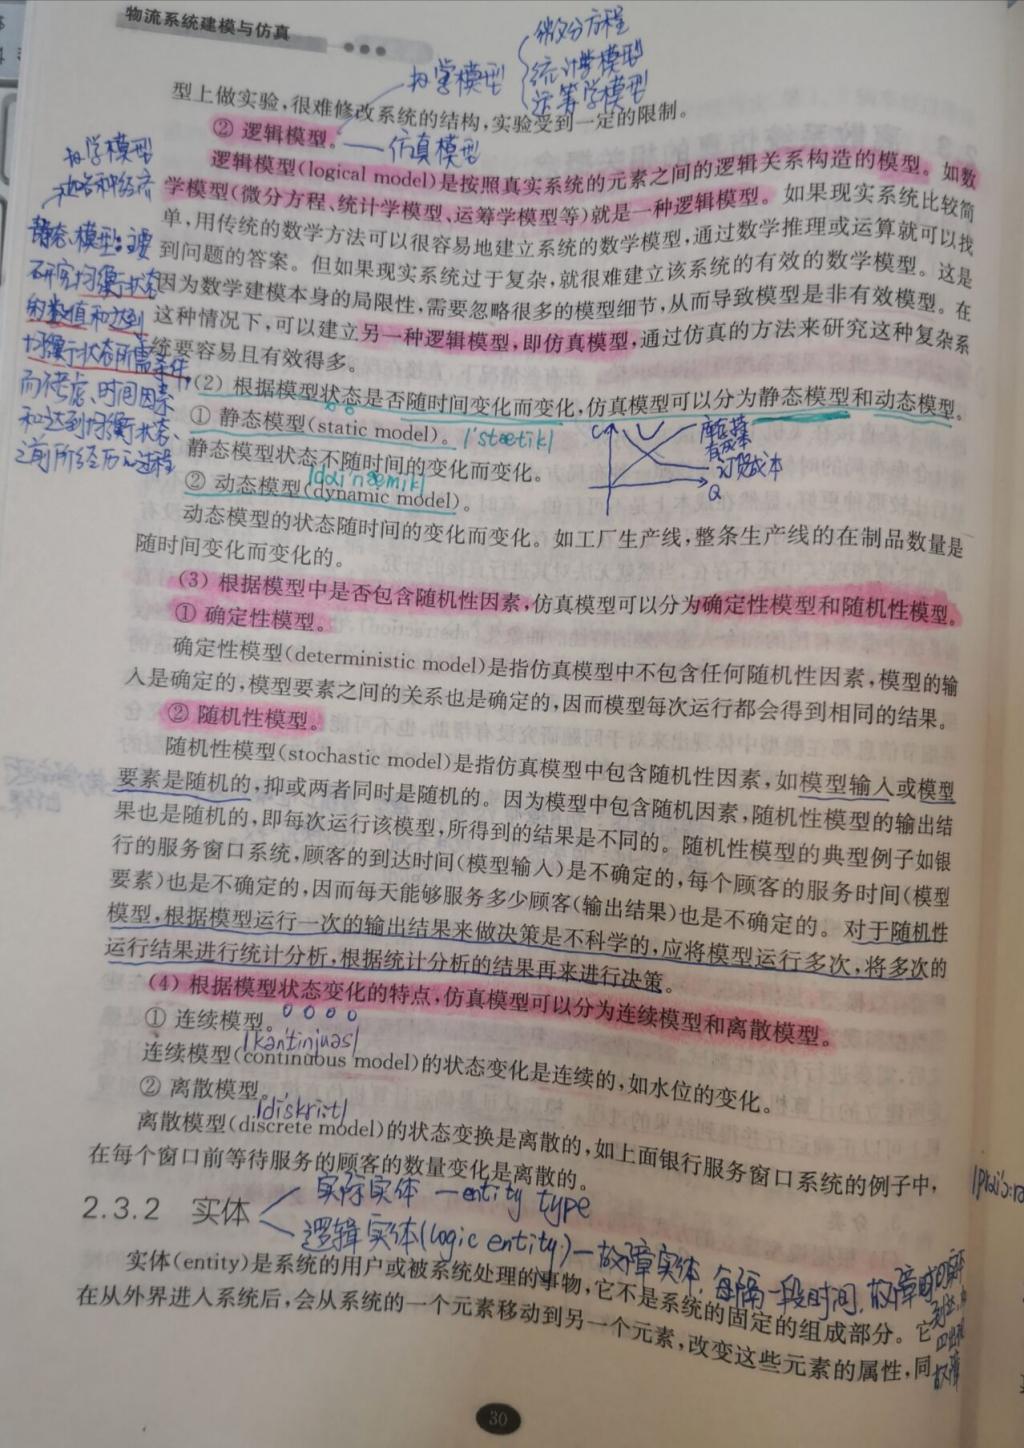 物流系统建模与仿真
数学模型
微分方程
统计学模型
运筹学模型
型上做实验，很难修改系统的结构，实验受到一定的限制。
② 逻辑模型。
仿真模型
逻辑模型(logical model)是按照真实系统的元素之间的逻辑关系构造的模型。如数
学模型(微分方程、统计学模型、运筹学模型等)就是一种逻辑模型。如果现实系统比较简
单，用传统的数学方法可以很容易地建立系统的数学模型，通过数学推理或运算就可以找
到问题的答案。但如果现实系统过于复杂，就很难建立该系统的有效的数学模型。这是
因为数学建模本身的局限性，需要忽略很多的模型细节，从而导致模型是非有效模型。在
这种情况下，可以建立另一种逻辑模型，即仿真模型，通过仿真的方法来研究这种复杂系
统要容易且有效得多。
数学模型
静态模型：主要
研究均衡状态
的数值和达到
均衡状态所需条件，
而不考虑时间因素
和达到均衡状态
之前所经历的过程
(2) 根据模型状态是否随时间变化而变化，仿真模型可以分为静态模型和动态模型。
① 静态模型(static model)。
静态模型状态不随时间的变化而变化。
② 动态模型(dynamic model)。
C
订货成本
Q
动态模型的状态随时间的变化而变化。如工厂生产线，整条生产线的在制品数量是
随时间变化而变化的。
(3) 根据模型中是否包含随机性因素，仿真模型可以分为确定性模型和随机性模型。
① 确定性模型。
确定性模型(deterministic model)是指仿真模型中不包含任何随机性因素，模型的输
入是确定的，模型要素之间的关系也是确定的，因而模型每次运行都会得到相同的结果。
② 随机性模型。
随机性模型(stochastic model)是指仿真模型中包含随机性因素，如模型输入或模型
要素是随机的，抑或两者同时是随机的。因为模型中包含随机因素，随机性模型的输出结
果也是随机的，即每次运行该模型，所得到的结果是不同的。随机性模型的典型例子如银
行的服务窗口系统，顾客的到达时间(模型输入)是不确定的，每个顾客的服务时间(模型
要素)也是不确定的，因而每天能够服务多少顾客(输出结果)也是不确定的。对于随机性
模型，根据模型运行一次的输出结果来做决策是不科学的，应将模型运行多次，将多次的
运行结果进行统计分析，根据统计分析的结果再来进行决策。
(4) 根据模型状态变化的特点，仿真模型可以分为连续模型和离散模型。
① 连续模型。
连续模型(continuous model)的状态变化是连续的，如水位的变化。
② 离散模型。
离散模型(discrete model)的状态变换是离散的，如上面银行服务窗口系统的例子中，
在每个窗口前等待服务的顾客的数量变化是离散的。
2.3.2 实体
实际实体 — entity type
逻辑实体(logic entity) — 故障实体：每隔一段时间，故障
实体(entity)是系统的用户或被系统处理的事物，它不是系统的固定的组成部分。它
在从外界进入系统后，会从系统的一个元素移动到另一个元素，改变这些元素的属性，同
30